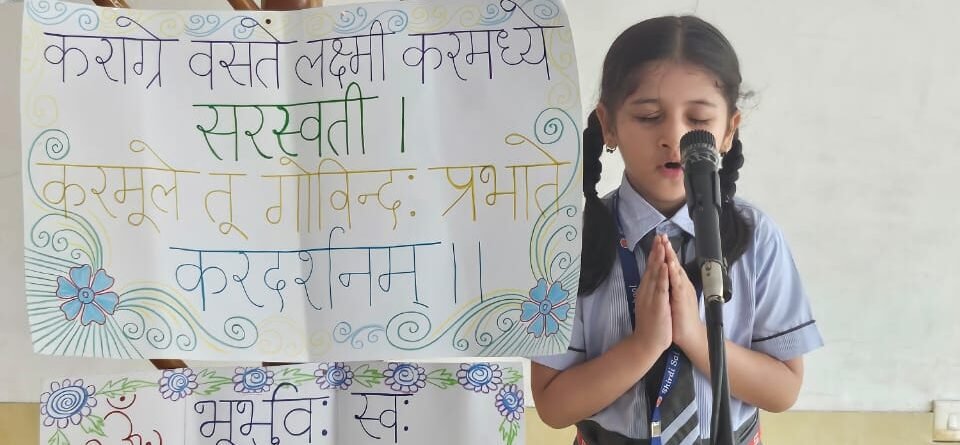 कराग्रे वसते लक्ष्मी करमध्ये
सरस्वती ।
करमूले तू गोविन्दः प्रभाते
करदर्शनम् ।।
ॐ भूर्भुवः स्वः
Shirdi